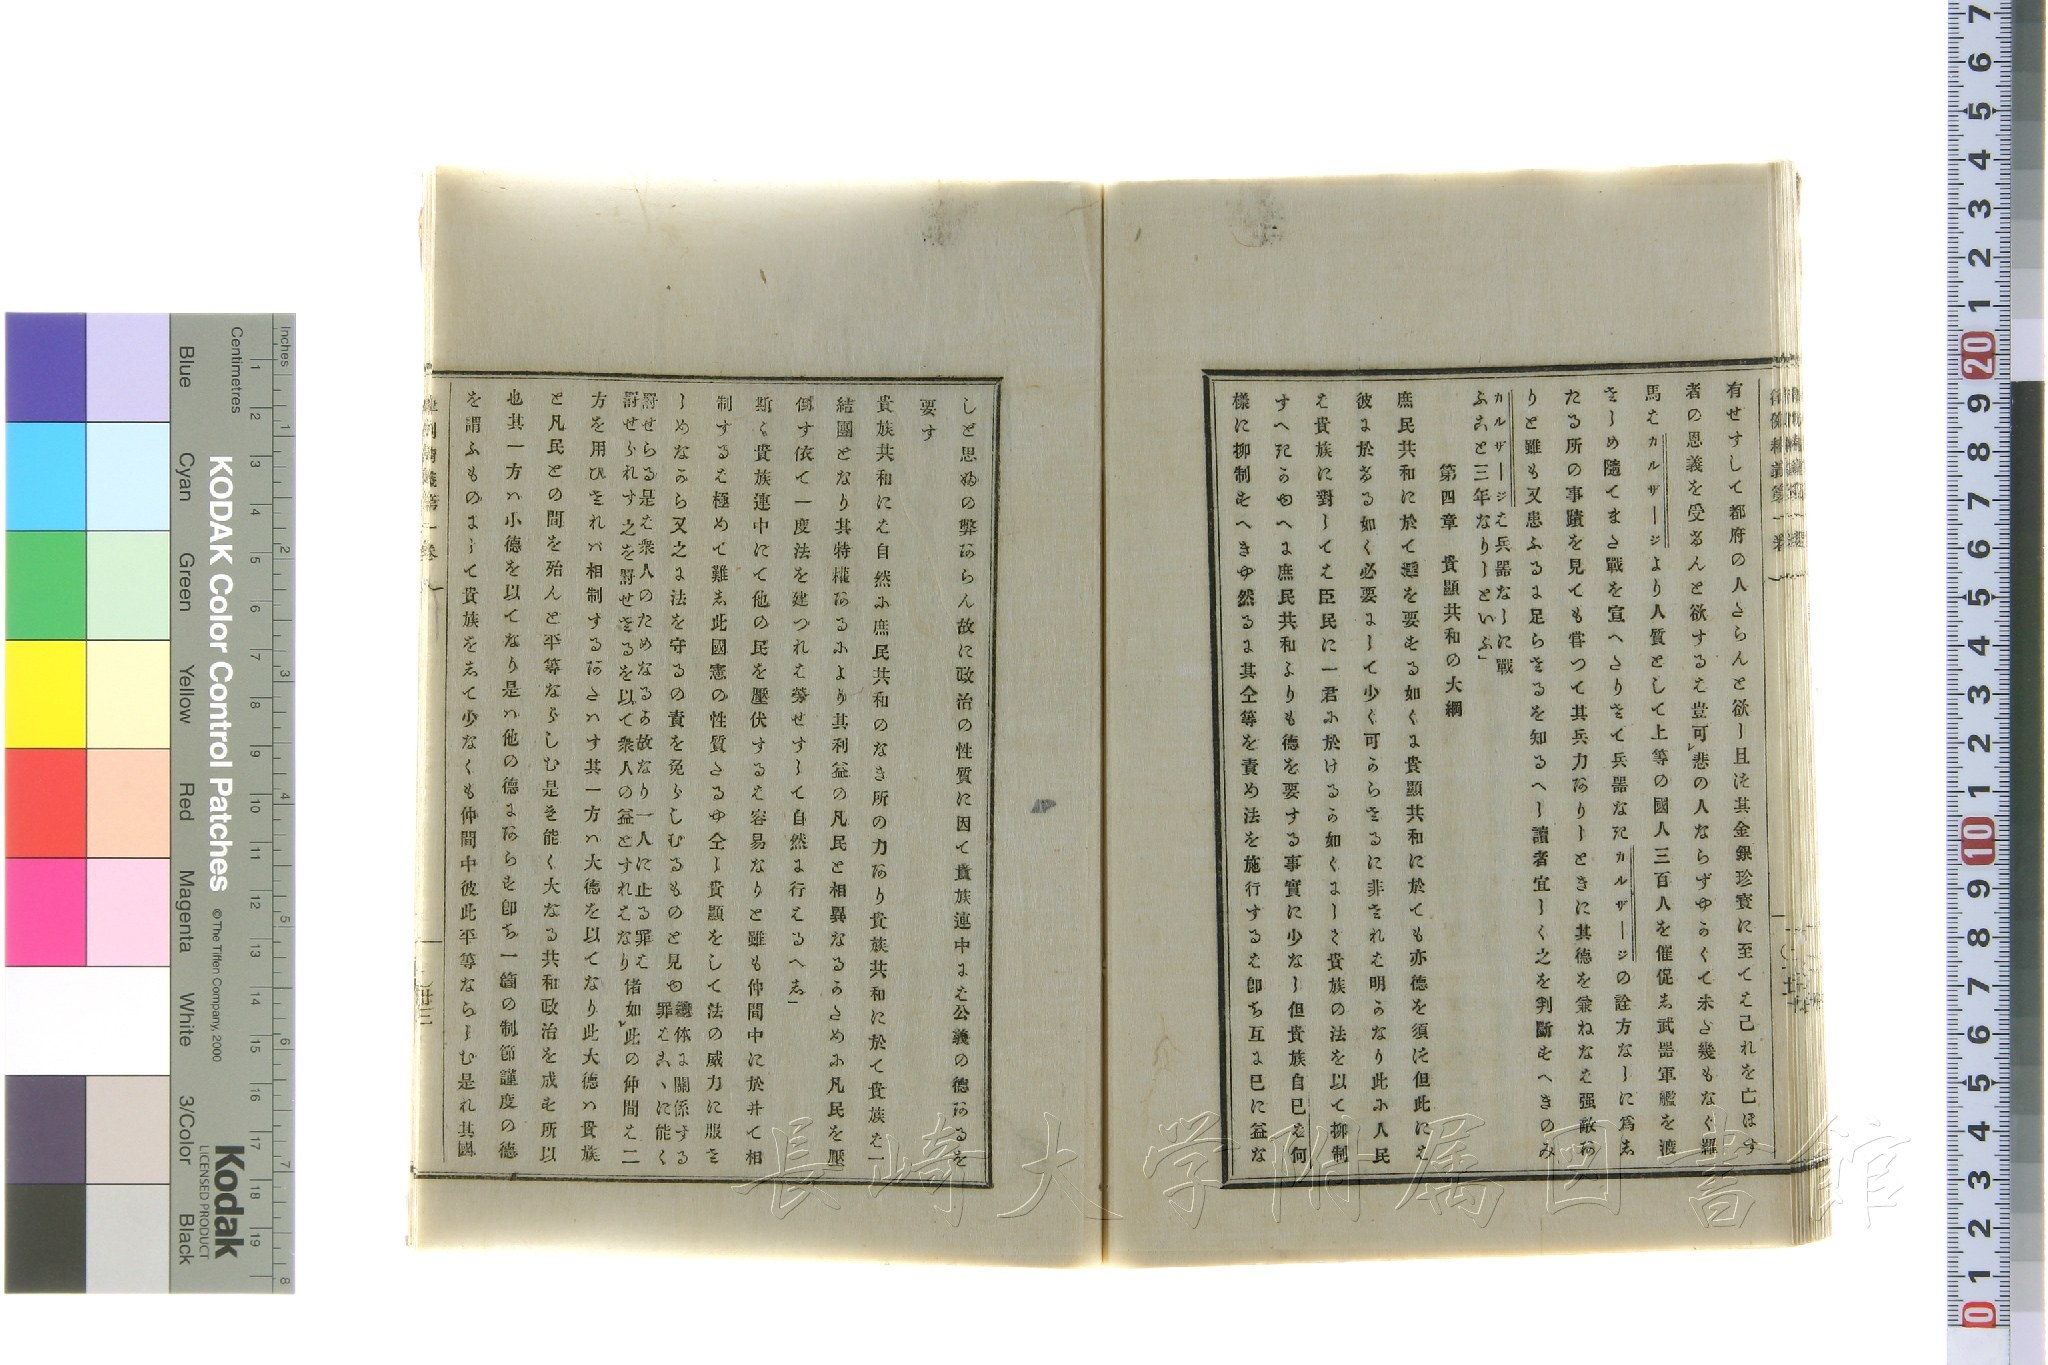 有せすして都府の人さらんと欲し且は其金銀珍寳に至ては己れを亡ほす
者の恩義を受るんと欲するは豈可レ悲の人ならずやかくて未さ幾もなく羅
馬はカルザージより人質として上等の國人三百人を催促し武器軍艦を渡
さしめ隨てまさ戰を宣へさりさて兵器なきカルザージの詮方なしに爲し
たる所の事蹟を見ても甞つて其兵力ありしときに其德を兼ねなは强敵あ
りと雖も又患ふるに足らさるを知るへし讀者宜しく之を判斷せへきのみ
カルザージは兵器なしに戰
ふこと三年なりしといふ」
第四章　貴顯共和の大綱
庶民共和に於て德を要せる如くに貴顯共和に於ても亦德を須は但此には
彼に於るる如く必要にして少く可らさるに非されは明らなり此に人民
は貴族に對しては臣民に一君に於ける如くにして貴族の法を以て抑制
すへきかゆへに庶民共和よりも德を要する事實に少なし但貴族自已は何
樣に抑制せへきや然るに其仝等を責め法を施行するは卽ち互に已に益な
しと思ぬの弊あらん故に政治の性質に因て貴族連中には公義の德あるを
要す
貴族共和には自然に庶民共和のなき所の力あり貴族共和に於て貴族は一
結團となり其特權あるにより其利益の凡民と相異なるかために凡民を壓
倒す依て一度法を建つれは勞せすして自然に行はるへし」
斯く貴族連中にて他の民を壓伏するは容易なりと雖も仲間中に於井て相
制するは極めて難し此國憲の性質さるや仝し貴顯をして法の威力に服さ
しめなから又之に法を守るの責を免らしむるものと見ゆ
譏体に關係する
罪はこゝに能く
罸せらる是は衆人のためなるか故なり一人に止る罪は
罸せられす之を罸せさるを以て衆人の益とすれはなり
偖如レ此の仲間は二
方を用ひされハ相制するあさハす其一方ハ大德を以てなり此大德ハ貴族
と凡民との間を殆んと平等ならしむ是を能く大なる共和政治を成せ所以
也其一方ハ小德を以てなり是ハ他の德にあらも卽ち一箇の制節謹度の德
を謂ふものにして貴族をして少なくも仲間中彼此平等ならしむ是れ其國
廿三
長崎大学附属図書館
KODAK Color Control Patches
© The Tiffen Company, 2000
Kodak
LICENSED PRODUCT
Inches
Centimetres
Blue
Cyan
Green
Yellow
Red
Magenta
White
3/Color
Black